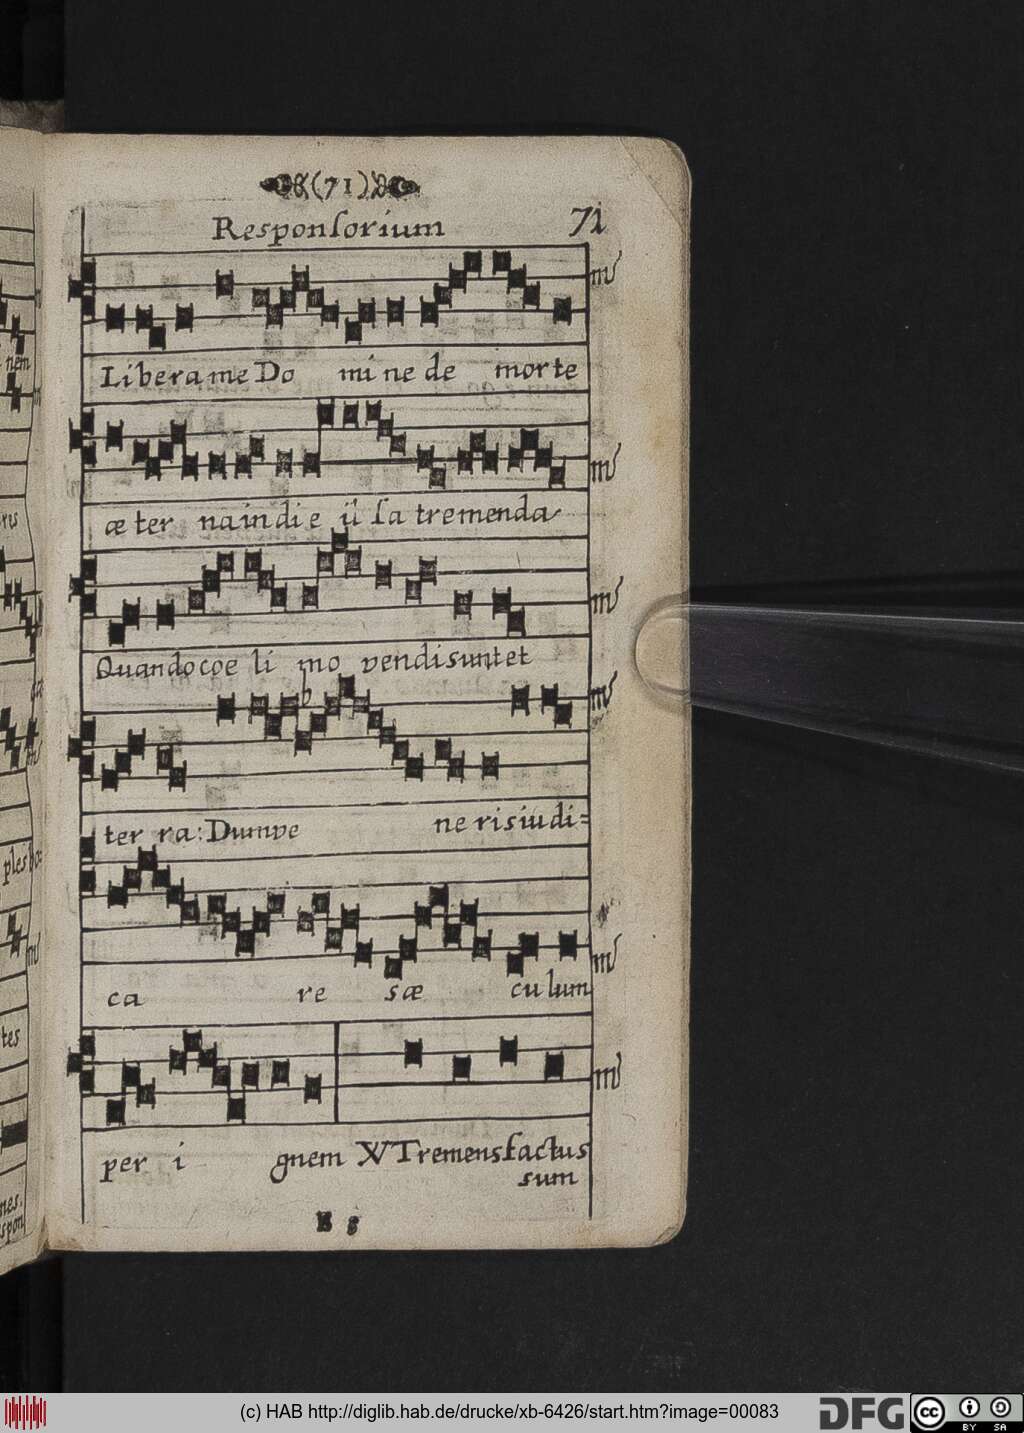 (71)
Responsorium 71
Libera me Do mi ne de morte
æ ter na in di e il la tremenda
Quando cœ li mo vendi sunt et
ter ra: Dum ve ne ris iudi=
ca re sæ culum
per i gnem V Tremens factus
sum
nem
res
ples
tes
nes.
spon
(c) HAB http://diglib.hab.de/drucke/xb-6426/start.htm?image=00083
DFG
cc
BY SA